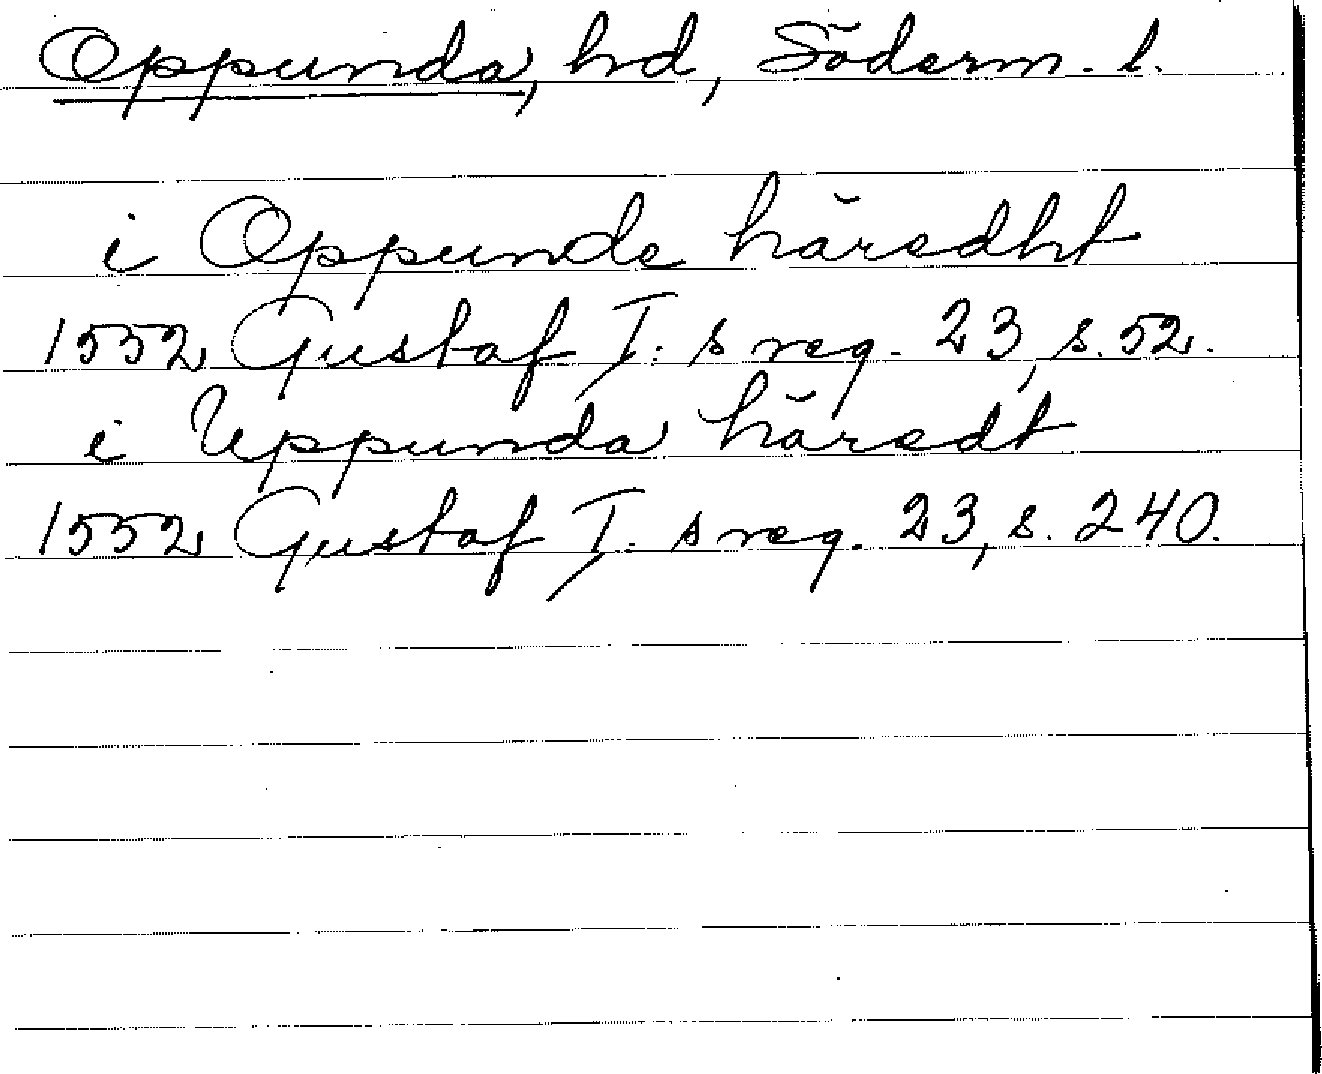 Oppunda, hd, Söderm. l.
i Oppunde häredht
1552 Gustaf I: s reg. 23, s. 52.
i Uppunda häredt
1552 Gustaf I: s reg. 23, s. 240.